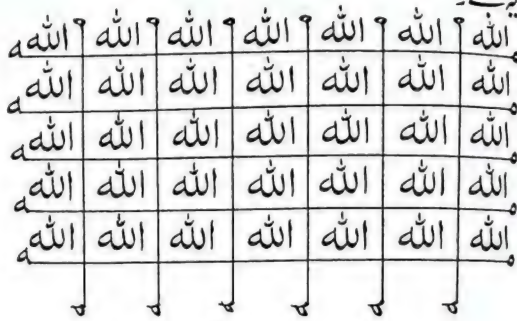 الله الله الله الله الله الله الله
الله الله الله الله الله الله الله
الله الله الله الله الله الله الله
الله الله الله الله الله الله الله
الله الله الله الله الله الله الله